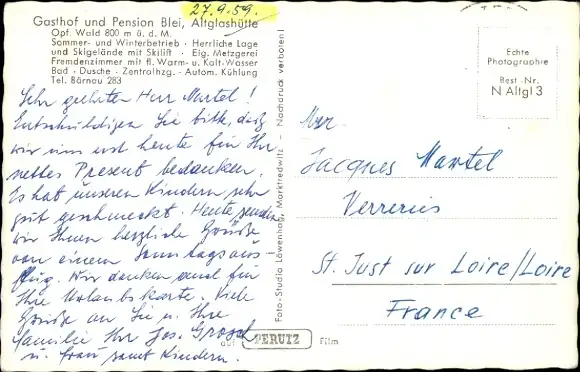 27.9.59.
Gasthof und Pension Blei, Altglashütte
Opf. Wald 800 m ü. d. M.
Sommer- und Winterbetrieb · Herrliche Lage
und Skigelände mit Skilift · Eig. Metzgerei
Fremdenzimmer mit fl. Warm- u. Kalt-Wasser
Bad · Dusche · Zentralhzg. · Autom. Kühlung
Tel. Bärnau 283
Sehr geehrter Herr Martel!
Entschuldigen Sie bitte, daß
wir uns erst heute für Ihr
nettes Present bedanken.
Es hat unseren Kindern sehr
gut geschmeckt. Heute senden
wir Ihnen herzliche Grüße
von einem Sonntagsaus
flug. Wir danken auch für
Ihre Urlaubskarte. Viele
Grüße an Sie u. Ihre
Familie Ihr Jos. Grosch
u. Frau samt Kindern.
Foto-Studio Löwenhag, Marktredwitz – Nachdruck verboten!
auf PERUTZ Film
Echte
Photographie
Best.-Nr.
N Altgl 3
Jacques Martel
Verreries
St. Just sur Loire/Loire
France